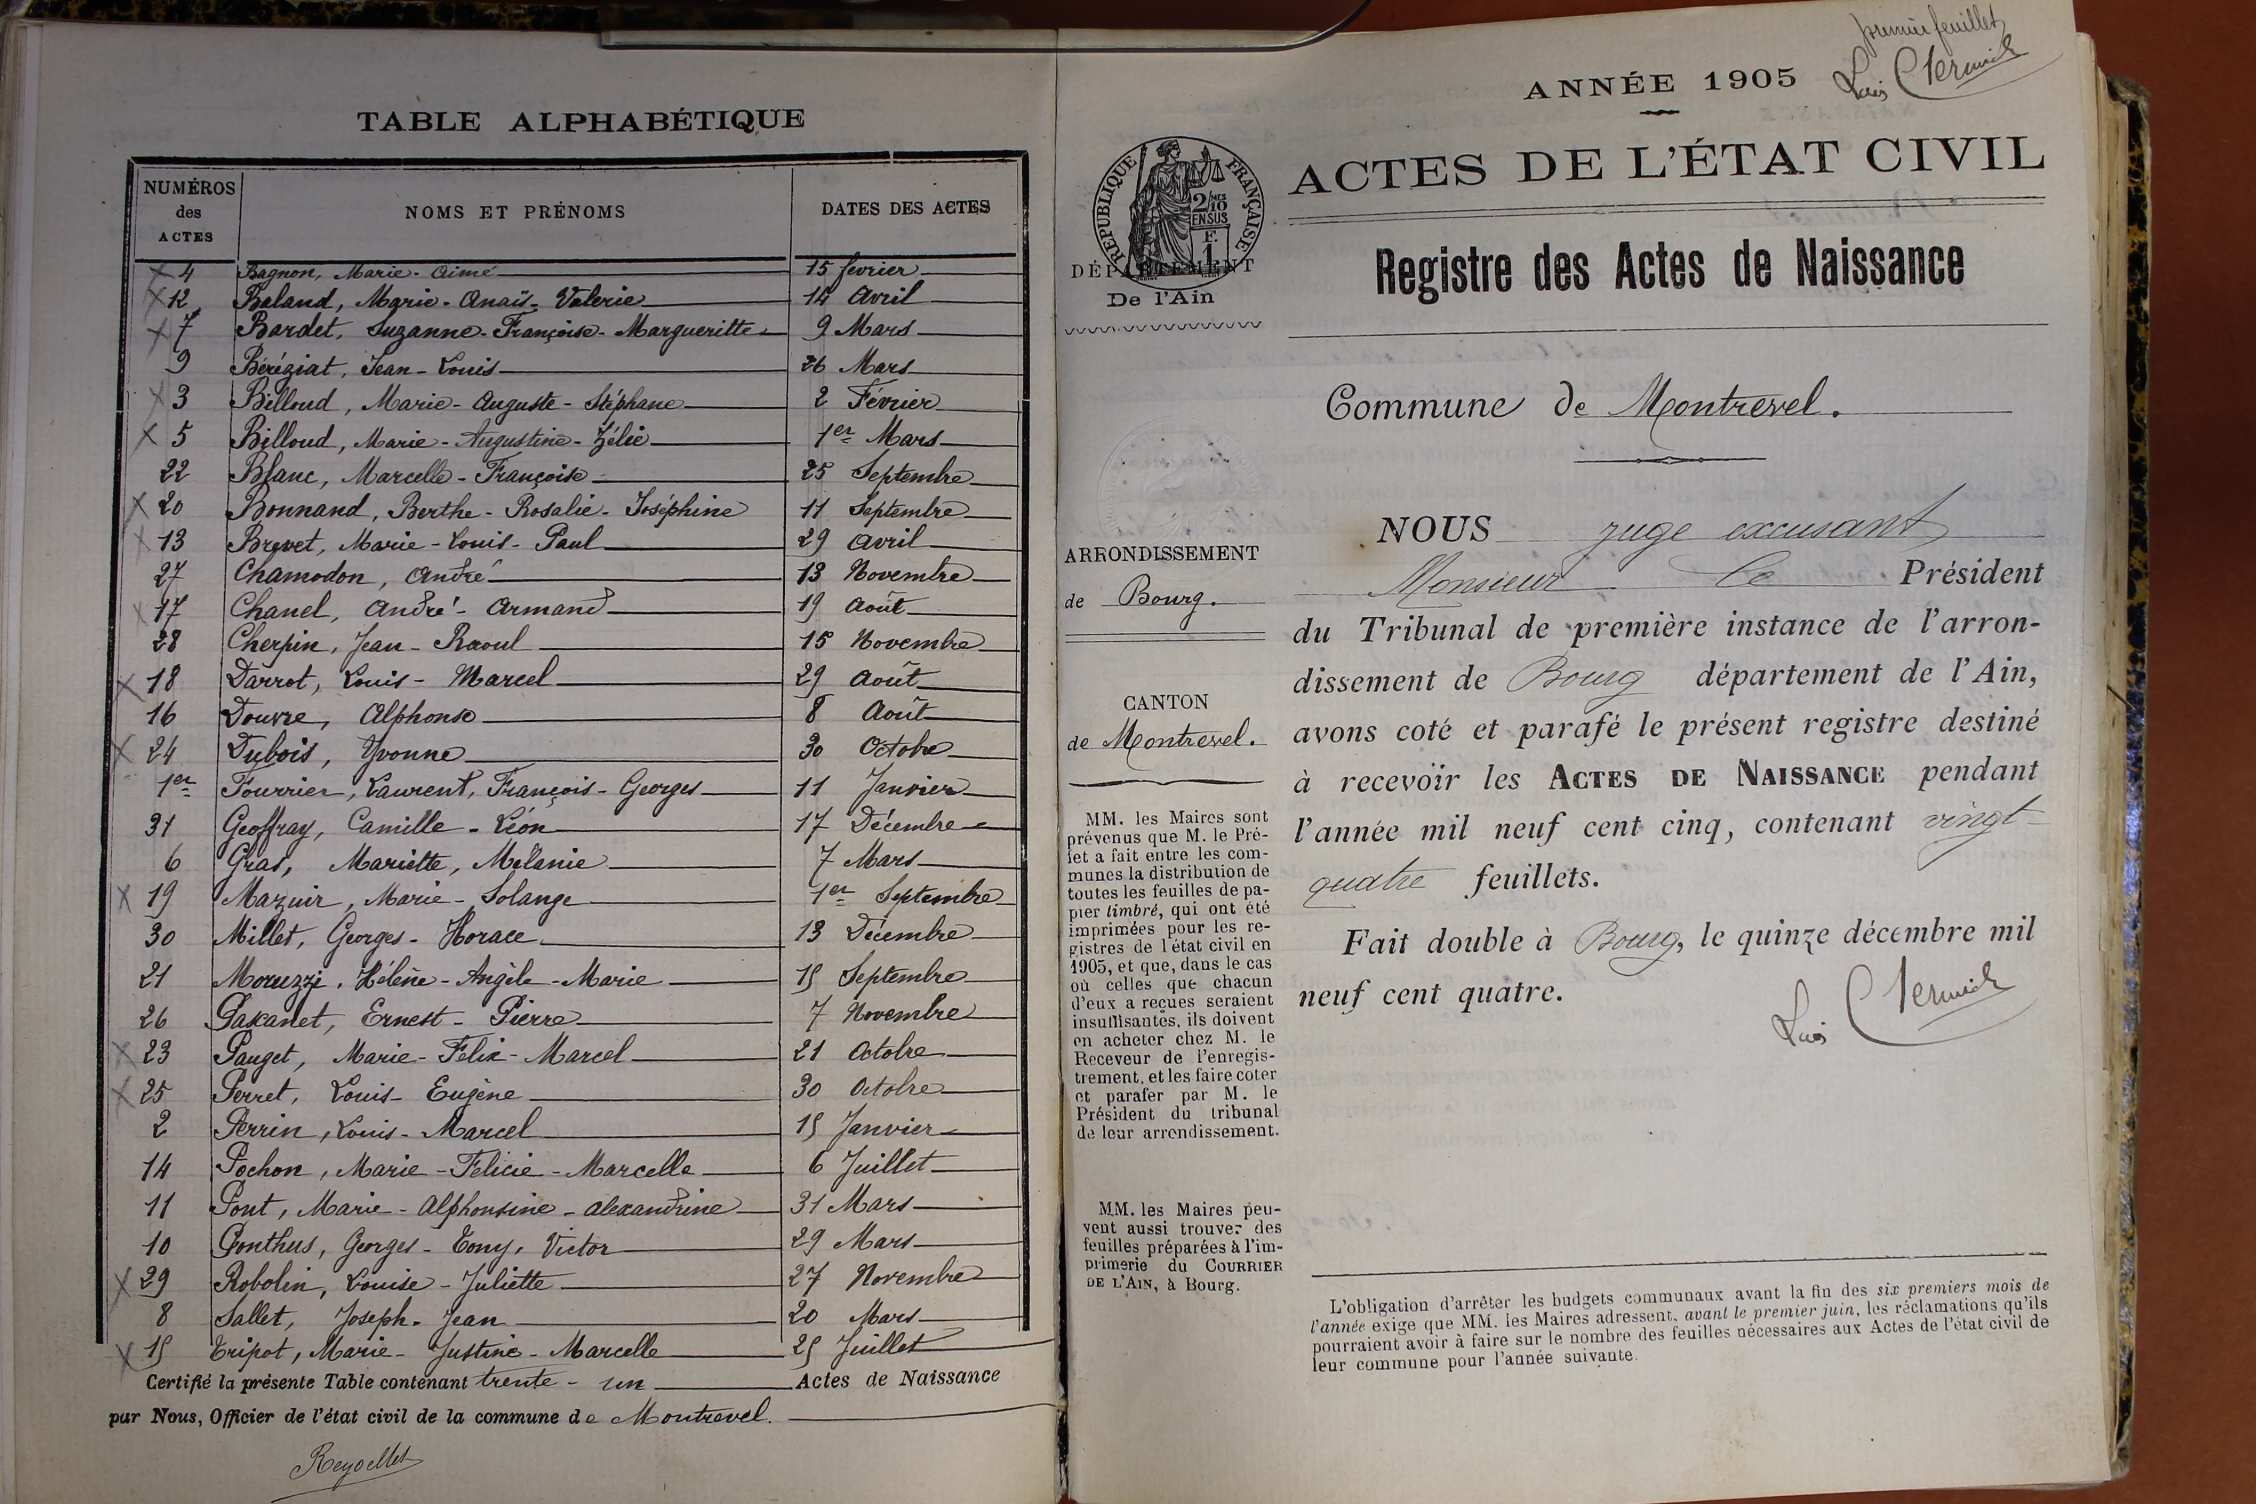 TABLE ALPHABÉTIQUE
NUMÉROS des ACTES NOMS ET PRÉNOMS DATES DES ACTES
4 Bagnon, Marie-Aimé 15 février
12 Baland, Marie-Anaïs-Valerie 14 Avril
7 Bardet, Suzanne-Françoise-Margueritte 9 Mars
9 Bérégiat, Jean-Louis 26 Mars
3 Billoud, Marie-Auguste-Stéphane 2 Février
5 Billoud, Marie-Augustine-Zélie 1er Mars
22 Blanc, Marcelle-Françoise 25 Septembre
20 Bonnand, Berthe-Rosalie-Joséphine 11 Septembre
13 Brevet, Marie-Louis-Paul 29 Avril
27 Chamodon, André 13 Novembre
17 Chanel, André-Armand 19 Août
28 Cherpin, Jean-Raoul 15 Novembre
18 Darrot, Louis-Marcel 29 Août
16 Douvre, Alphonse 8 Août
24 Dubois, Yvonne 30 Octobre
1er Fourrier, Laurent, François-Georges 11 Janvier
31 Geoffray, Camille-Léon 17 Décembre
6 Gras, Mariette, Mélanie 7 Mars
19 Mazuir, Marie-Solange 1er Septembre
30 Millet, Georges-Horace 13 Décembre
21 Moruzzi, Hélène-Angèle-Marie 15 Septembre
26 Pakanet, Ernest-Pierre 7 Novembre
23 Pauget, Marie-Felix-Marcel 21 Octobre
25 Perret, Louis-Eugène 30 Octobre
2 Perrin, Louis-Marcel 15 Janvier
14 Pochon, Marie-Felicie-Marcelle 6 Juillet
11 Pont, Marie-Alphonsine-Alexandrine 31 Mars
10 Ponthus, Georges-Tony, Victor 29 Mars
29 Robolin, Louise-Juliette 27 Novembre
8 Sallet, Joseph-Jean 20 Mars
15 Tripot, Marie-Justine-Marcelle 25 Juillet
Certifié la présente Table contenant trente-un Actes de Naissance
par Nous, Officier de l'état civil de la commune de Montrevel.
premier feuillet
ANNÉE 1905
ACTES DE L'ÉTAT CIVIL
RÉPUBLIQUE FRANÇAISE
2/10 EN SUS
F. 1
DÉPARTEMENT
De l'Ain
Registre des Actes de Naissance
Commune de Montrevel.
ARRONDISSEMENT
de Bourg.
CANTON
de Montrevel.
MM. les Maires sont
prévenus que M. le Pré-
fet a fait entre les com-
munes la distribution de
toutes les feuilles de pa-
pier timbré, qui ont été
imprimées pour les re-
gistres de l'état civil en
1905, et que, dans le cas
où celles que chacun
d'eux a reçues seraient
insuffisantes, ils doivent
en acheter chez M. le
Receveur de l'enregis-
trement, et les faire coter
et parafer par M. le
Président du tribunal
de leur arrondissement.
MM. les Maires peu-
vent aussi trouver des
feuilles préparées à l'im-
primerie du COURRIER
DE L'AIN, à Bourg.
NOUS juge excusant
Monsieur Le Président
du Tribunal de première instance de l'arron-
dissement de Bourg département de l'Ain,
avons coté et parafé le présent registre destiné
à recevoir les ACTES DE NAISSANCE pendant
l'année mil neuf cent cinq, contenant vingt-
quatre feuillets.
Fait double à Bourg, le quinze décembre mil
neuf cent quatre.
L'obligation d'arrêter les budgets communaux avant la fin des six premiers mois de
l'année exige que MM. les Maires adressent, avant le premier juin, les réclamations qu'ils
pourraient avoir à faire sur le nombre des feuilles nécessaires aux Actes de l'état civil de
leur commune pour l'année suivante.